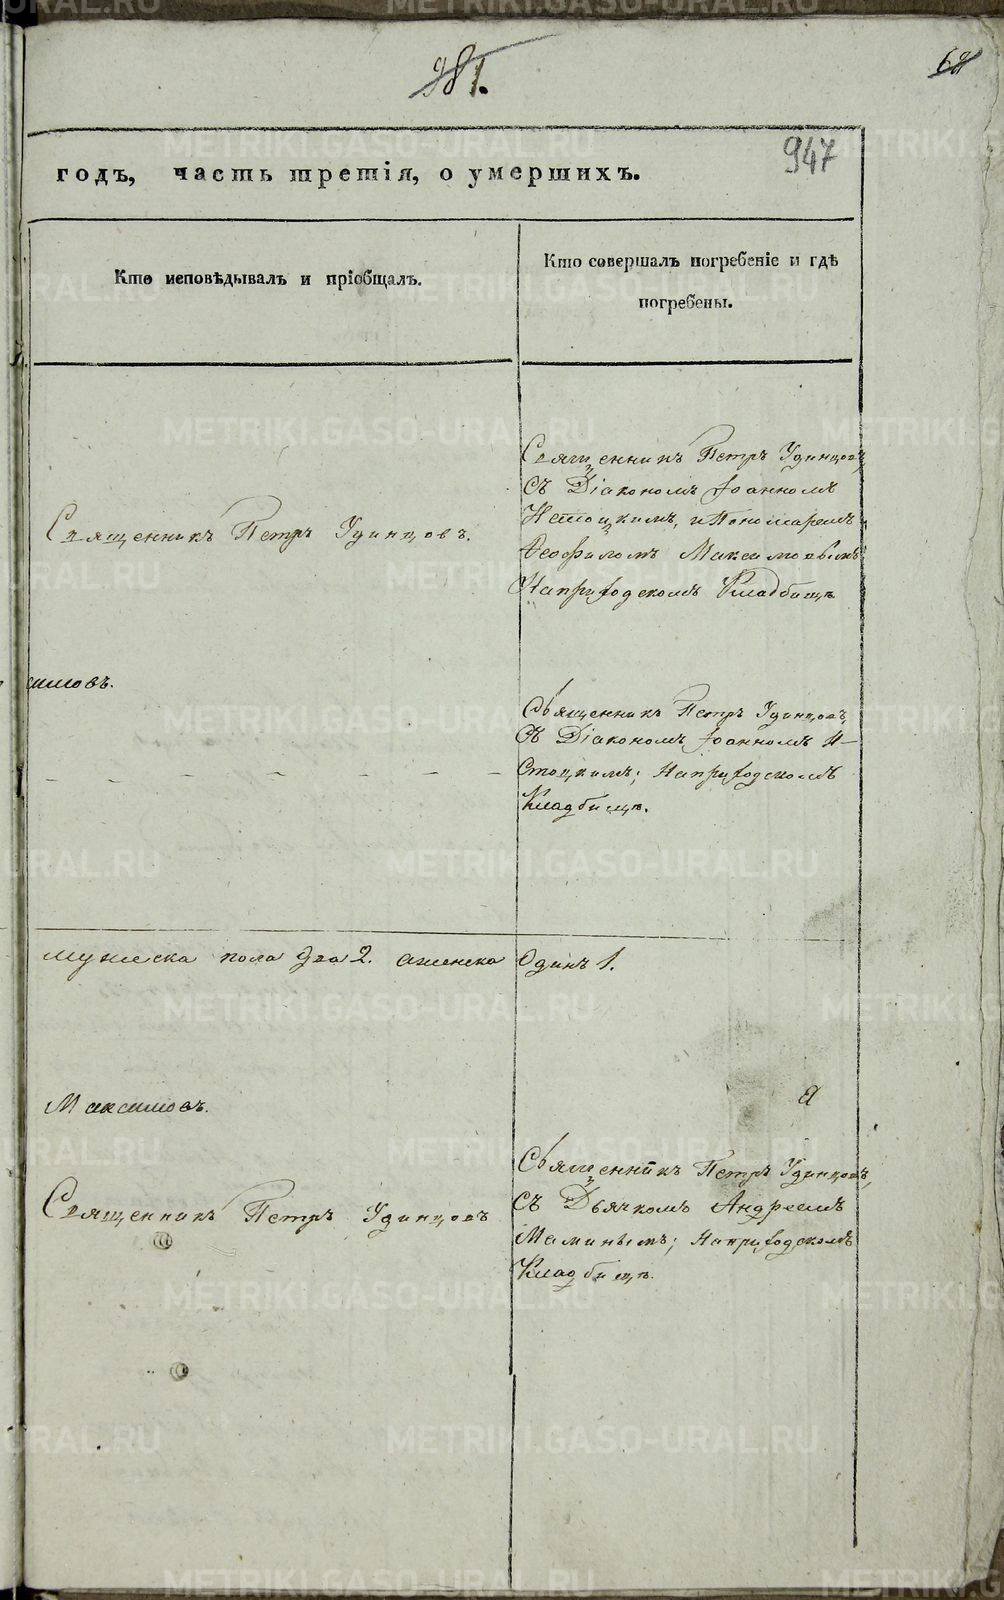 981.
62
947
годъ, часть третія, о умершихъ.
Кто исповѣдывалъ и пріобщалъ.
Кто совершалъ погребеніе и гдѣ
погребены.
Священникъ Петръ Удинцовъ,
Съ Діакономъ Іоанномъ
Истоцкимъ, и Пономаремъ
Ѳеофиломъ Максимовымъ
На приходскомъ Кладбищѣ
Священникъ Петръ Удинцовъ.
симовъ.
Священникъ Петръ Удинцовъ,
Съ Діакономъ Іоанномъ И-
стоцкимъ; На приходскомъ
Кладбищѣ.
мужеска пола два 2. а женска Одинъ 1.
Максимовъ.
Священникъ Петръ Удинцовъ,
Съ Дьячкомъ Андреемъ
Маминымъ; На приходскомъ
Кладбищѣ.
Священникъ Петръ Удинцовъ
METRIKI.GASO-URAL.RU